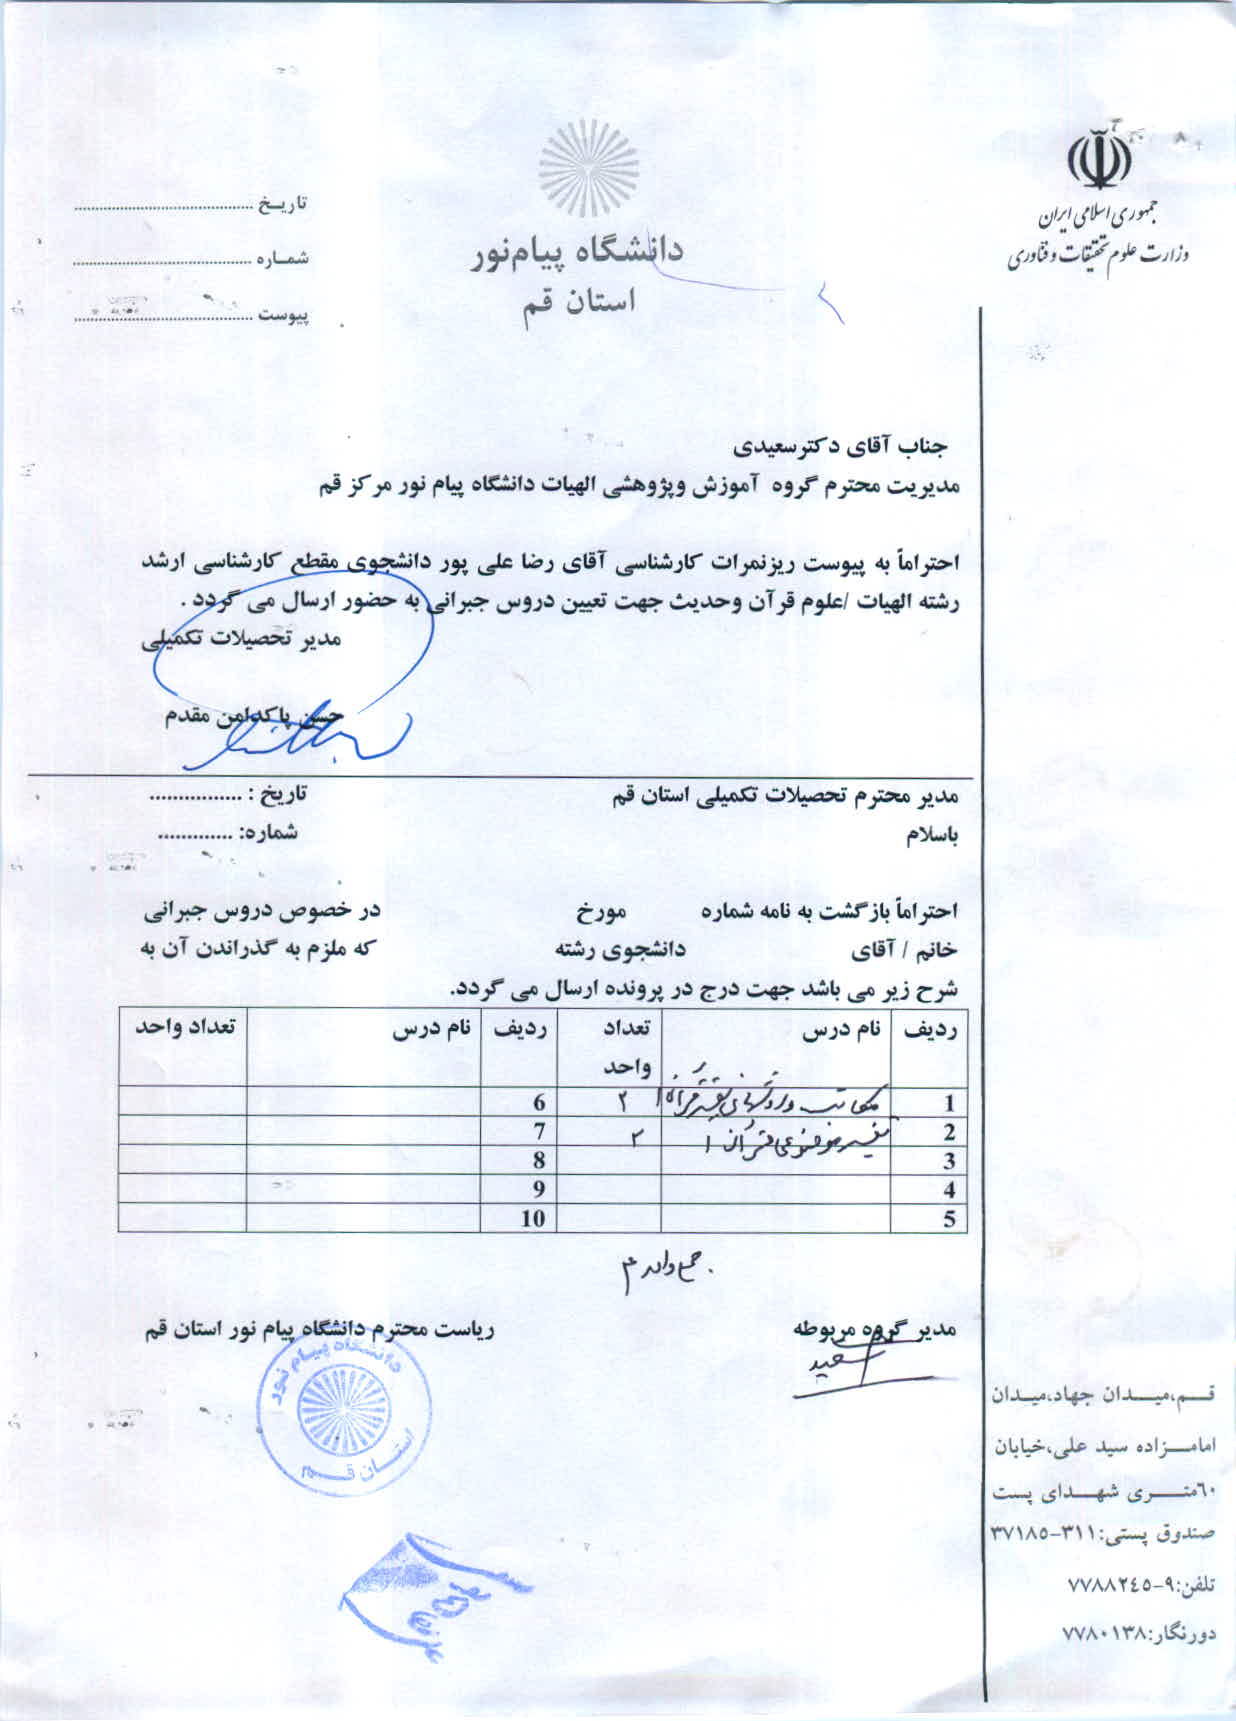 جمهوری اسلامی ایران
وزارت علوم تحقیقات و فناوری
دانشگاه پیام‌نور
استان قم
تاریـخ ........................................
شمـاره ........................................
پیوست ........................................
جناب آقای دکترسعیدی
مدیریت محترم گروه آموزش وپژوهشی الهیات دانشگاه پیام نور مرکز قم
احتراماً به پیوست ریزنمرات کارشناسی آقای رضا علی پور دانشجوی مقطع کارشناسی ارشد
رشته الهیات /علوم قرآن وحدیث جهت تعیین دروس جبرانی به حضور ارسال می گردد .
مدیر تحصیلات تکمیلی
حسن پاکدامن مقدم
مدیر محترم تحصیلات تکمیلی استان قم تاریخ : ................
باسلام شماره: .............
احتراماً بازگشت به نامه شماره مورخ در خصوص دروس جبرانی
خانم / آقای دانشجوی رشته که ملزم به گذراندن آن به
شرح زیر می باشد جهت درج در پرونده ارسال می گردد.
ردیف نام درس تعداد واحد ردیف نام درس تعداد واحد
1 مکاتب و روشهای تفسیر قرآن ۱ ۲ 6
2 تفسیر موضوعی قرآن ۱ ۲ 7
3 8
4 9
5 10
جمع واحد ۴
مدیر گروه مربوطه ریاست محترم دانشگاه پیام نور استان قم
سعید
دانشگاه پیام نور
استـان قـم
قـــم،میـــدان جهاد،میـدان
امامـــزاده سید علی،خیابان
٦٠متـــری شهـــدای پست
صندوق پستی:۳۱۱-۳۷۱۸۵
تلفن:۹-۷۷۸۸۲٤٥
دورنگار:۷۷۸۰۱۳۸